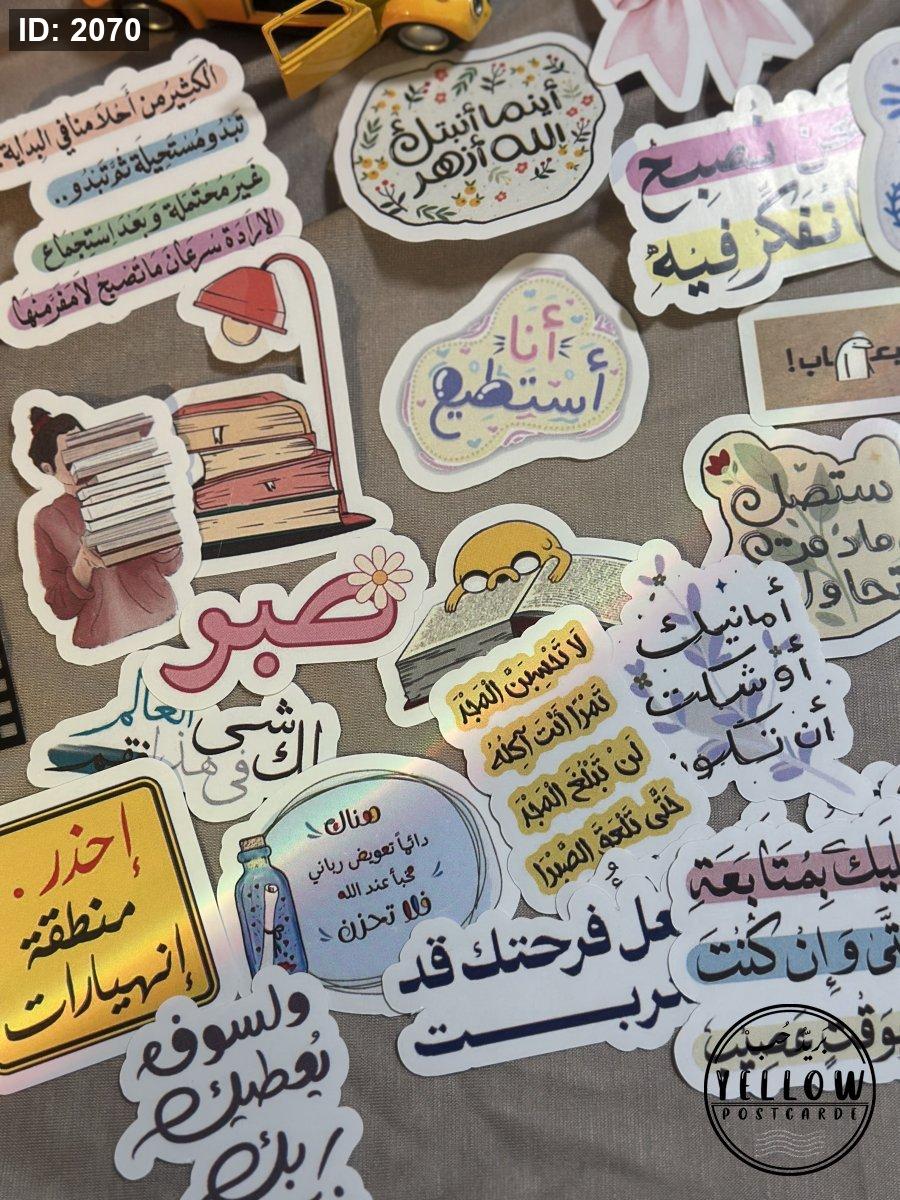 ID: 2070
الكثير من أحلامنا في البداية
تبدو مستحيلة ثم تبدو..
غير محتملة وبعد استجماع
الارادة سرعان ما تصبح لا مفر منها
أينما أنبتك
الله أزهر
نصبح
نفكر فيه
أنا
أستطيع
اب!
ستصل
مادمت
تحاول
صبر
أمانيك
أوشكت
أن تكون
لا تَحْسَبَنَّ الْمَجْدَ
تَمْرًا أَنْتَ آكِلُهُ
لَنْ تَبْلُغَ الْمَجْدَ
حَتَّى تَلْعَقَ الصَّبْرَا
العالم
شي
في هذا
الك
إحذر.
منطقة
إنهيارات
هناك
دائماً تعويض رباني
مُخبأ عند الله
فلا تحزن
عل فرحتك قد
ربت
ليك بِمُتَابَعَةِ
تَّى وَإِن كُنْتَ
وَقْتٍ عَصِيْبٍ
ولسوف
يُعطيك
ربك
بَرِيْد
YELLOW
POSTCARDE